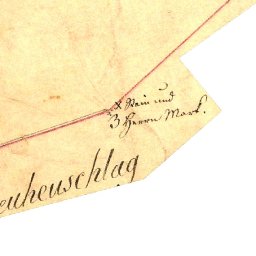 Stein und
3 Herrn Mark.
euheuschlag